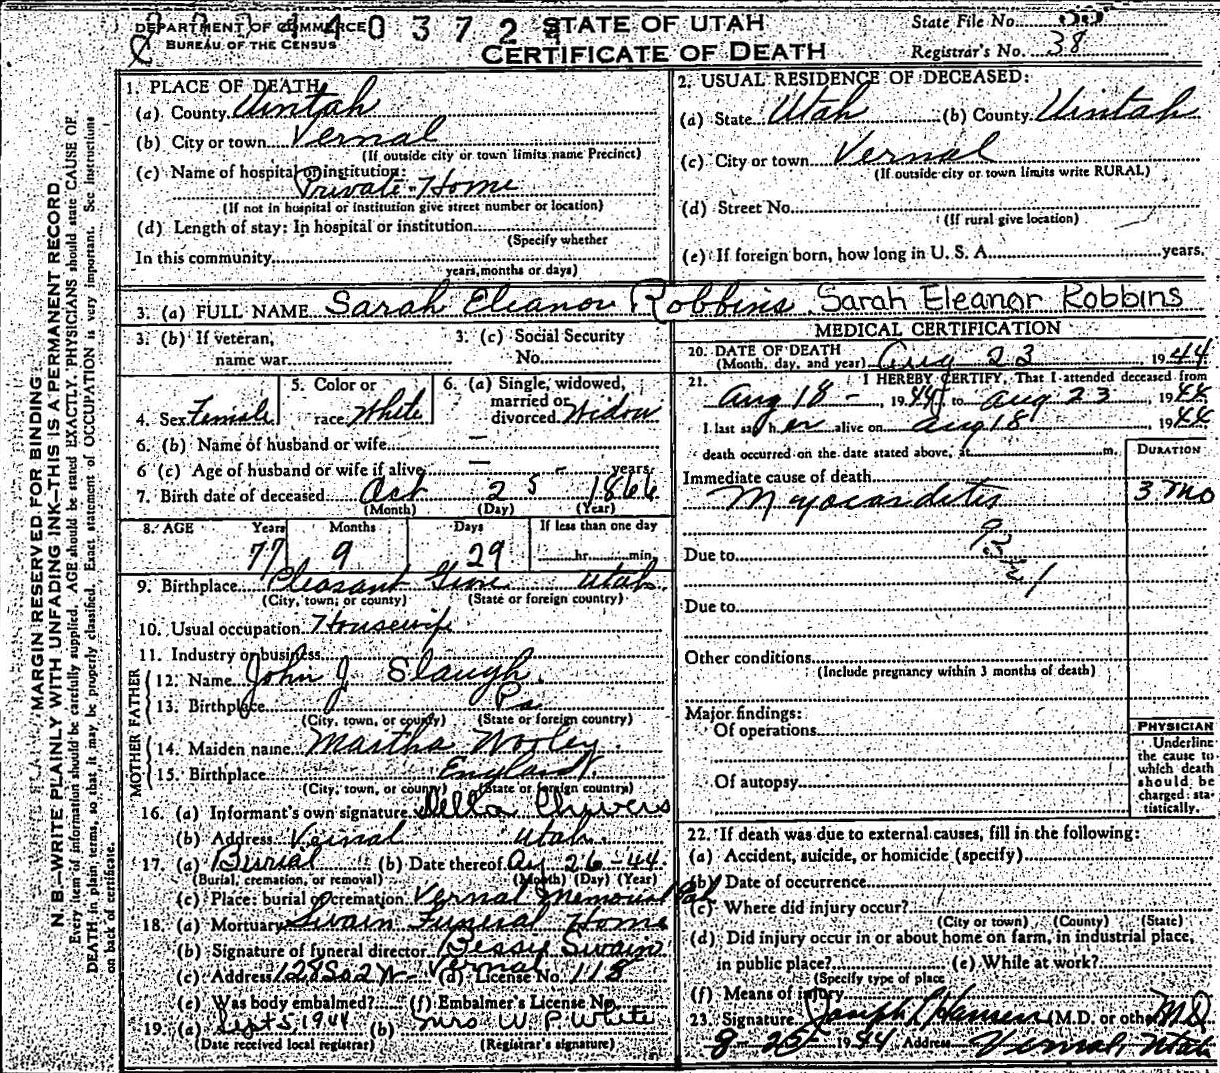 DEPARTMENT OF COMMERCE
BUREAU OF THE CENSUS
4 0 3 7 2
STATE OF UTAH
CERTIFICATE OF DEATH
State File No.
Registrar's No. 38
MARGIN RESERVED FOR BINDING
N. B.—WRITE PLAINLY WITH UNFADING INK—THIS IS A PERMANENT RECORD
Every item of information should be carefully supplied. AGE should be stated EXACTLY. PHYSICIANS should state CAUSE OF
DEATH in plain terms, so that it may be properly classified. Exact statement of OCCUPATION is very important. See instructions
on back of certificate.
1. PLACE OF DEATH
(a) County Uintah
(b) City or town Vernal
(If outside city or town limits name Precinct)
(c) Name of hospital or institution:
Private Home
(If not in hospital or institution give street number or location)
(d) Length of stay: In hospital or institution
(Specify whether
In this community
years, months or days)
2. USUAL RESIDENCE OF DECEASED:
(a) State Utah (b) County Uintah
(c) City or town Vernal
(If outside city or town limits write RURAL)
(d) Street No.
(If rural give location)
(e) If foreign born, how long in U. S. A. years.
3. (a) FULL NAME Sarah Eleanor Robbins Sarah Eleanor Robbins
3. (b) If veteran,
name war
3. (c) Social Security
No.
4. Sex Female
5. Color or
race White
6. (a) Single, widowed,
married or
divorced Widow
6. (b) Name of husband or wife —
6 (c) Age of husband or wife if alive — years
7. Birth date of deceased Oct 25 1866
(Month) (Day) (Year)
8. AGE Years Months Days If less than one day
77 9 29 hr. min.
9. Birthplace Pleasant Grove Utah
(City, town, or county) (State or foreign country)
10. Usual occupation Housewife
11. Industry or business
FATHER
12. Name John J Slaugh
13. Birthplace Pa
(City, town, or county) (State or foreign country)
MOTHER
14. Maiden name Martha Wooley
15. Birthplace England
(City, town, or county) (State or foreign country)
16. (a) Informant's own signature Della Chivers
(b) Address Vernal Utah
17. (a) Burial (b) Date thereof Aug 26-44
(Burial, cremation, or removal) (Month) (Day) (Year)
(c) Place: burial or cremation Vernal Memorial
18. (a) Mortuary Swain Funeral Home
(b) Signature of funeral director Bessy Swain
(c) Address Vernal (d) License No. 118
(e) Was body embalmed? (f) Embalmer's License No.
19. (a) Sept 5, 1944 (b) Mrs W P White
(Date received local registrar) (Registrar's signature)
MEDICAL CERTIFICATION
20. DATE OF DEATH
(Month, day, and year) Aug 23 1944
21. I HEREBY CERTIFY, That I attended deceased from
Aug 18 - , 1944 to Aug 23, 1944
I last saw her alive on Aug 18 1944
death occurred on the date stated above, at m.
DURATION
Immediate cause of death
Myocarditis 3 mo
Due to
Due to
Other conditions
(Include pregnancy within 3 months of death)
Major findings:
Of operations
Of autopsy
PHYSICIAN
Underline
the cause to
which death
should be
charged sta-
tistically.
22. If death was due to external causes, fill in the following:
(a) Accident, suicide, or homicide (specify)
(b) Date of occurrence
(c) Where did injury occur?
(City or town) (County) (State)
(d) Did injury occur in or about home on farm, in industrial place,
in public place? (e) While at work?
(Specify type of place
(f) Means of injury
23. Signature Joseph L Hansen (M.D. or other MD
8-25- 1944 Address Vernal, Utah